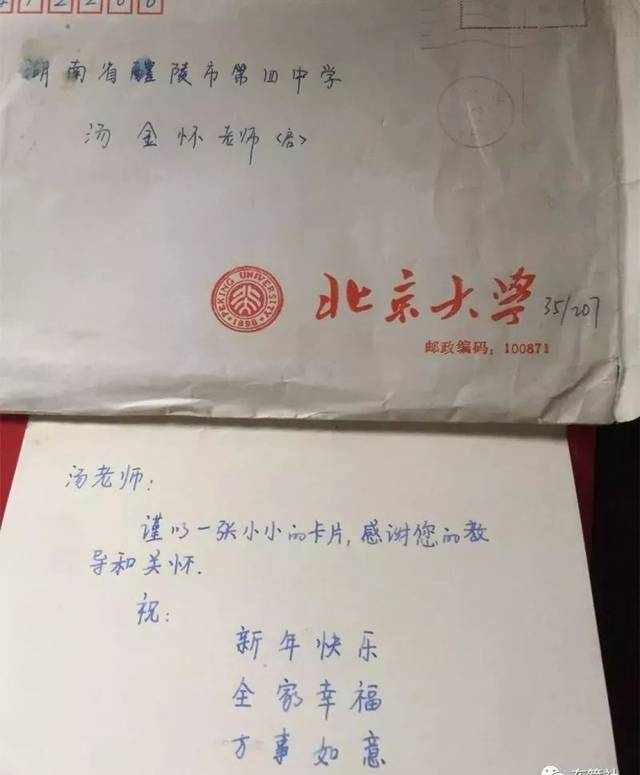 412200
湖南省醴陵市第四中学
汤金怀老师(启)
PEKING UNIVERSITY
1898
北京大学 35/207
邮政编码：100871
汤老师：
谨以一张小小的卡片，感谢您的教
导和关怀.
祝：
新年快乐
全家幸福
万事如意